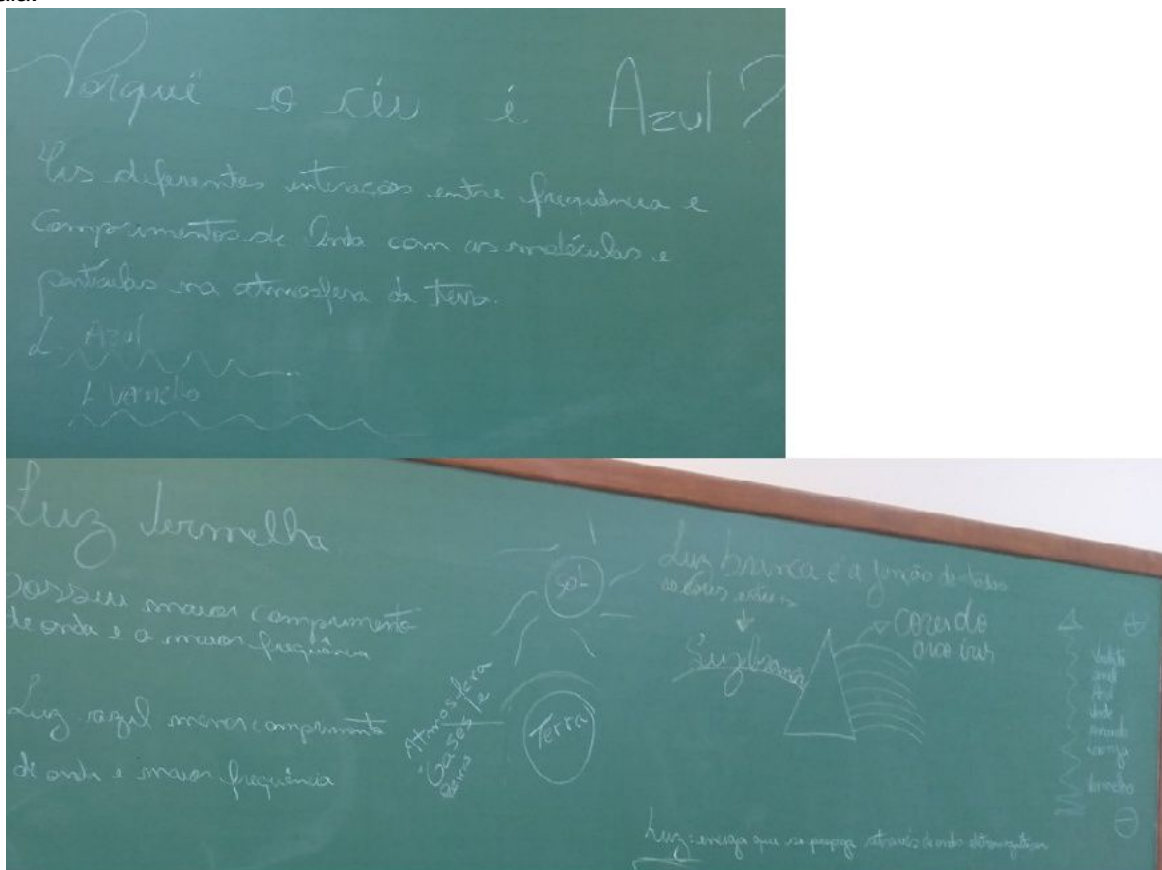 Porquê o céu é Azul?
diferentes interações entre frequência e
Comprimentos de Onda com as moléculas e
partículas na atmosfera da terra.
L Azul
L vermelho
Luz Vermelha
Possui maior comprimento
de onda e a maior frequência
Luz azul menor comprimento
de onda e maior frequência
Sol
Atmosfera
Gases e
Terra
Luz branca é a junção de todas
as cores
Luz branca
cores do
arco iris
+
Violeta
anil
Azul
Verde
Amarelo
laranja
Vermelho
-
Luz: energia que se propaga através de ondas eletromagnéticas